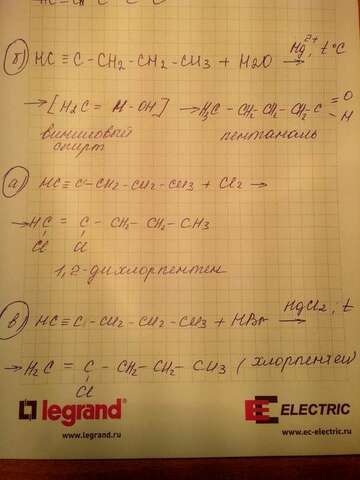 б) HC ≡ C - CH2 - CH2 - CH3 + H2O Hg2+, t°C →
→ [H2C = H - OH] → H3C - CH2 - CH2 - CH2 - C =O -H
виниловый спирт
пентаналь
а) HC ≡ C - CH2 - CH2 - CH3 + Cl2 →
→ HC = C - CH2 - CH2 - CH3
Cl Cl
1,2-дихлорпентен
в) HC ≡ C - CH2 - CH2 - CH3 + HBr HgCl2, t →
→ H2C = C - CH2 - CH2 - CH3 (хлорпентен
Cl
legrand ELECTRIC
www.legrand.ru www.ec-electric.ru